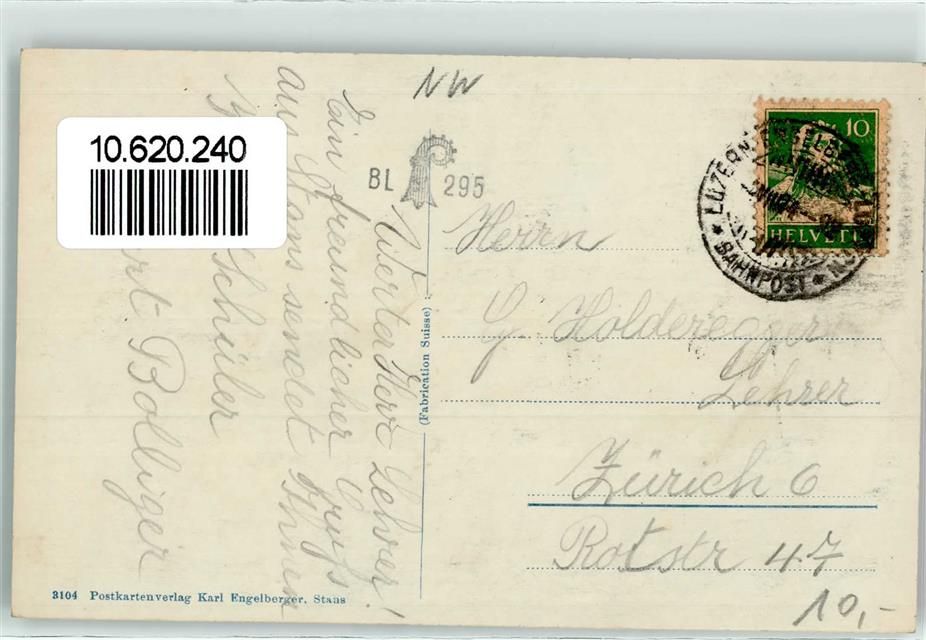 NW
10.620.240
BL 295
Werter Herr Lehrer!
Ein freundlicher Gruss
aus Stans sendet Ihnen
Schüler
Bolliger
Herrn
G. Holderegger
Lehrer
Zürich 6
Rotstr 47
10
HELVETIA
LUZERN
BAHNPOST
(Fabrication Suisse)
3104 Postkartenverlag Karl Engelberger, Stans
10,-